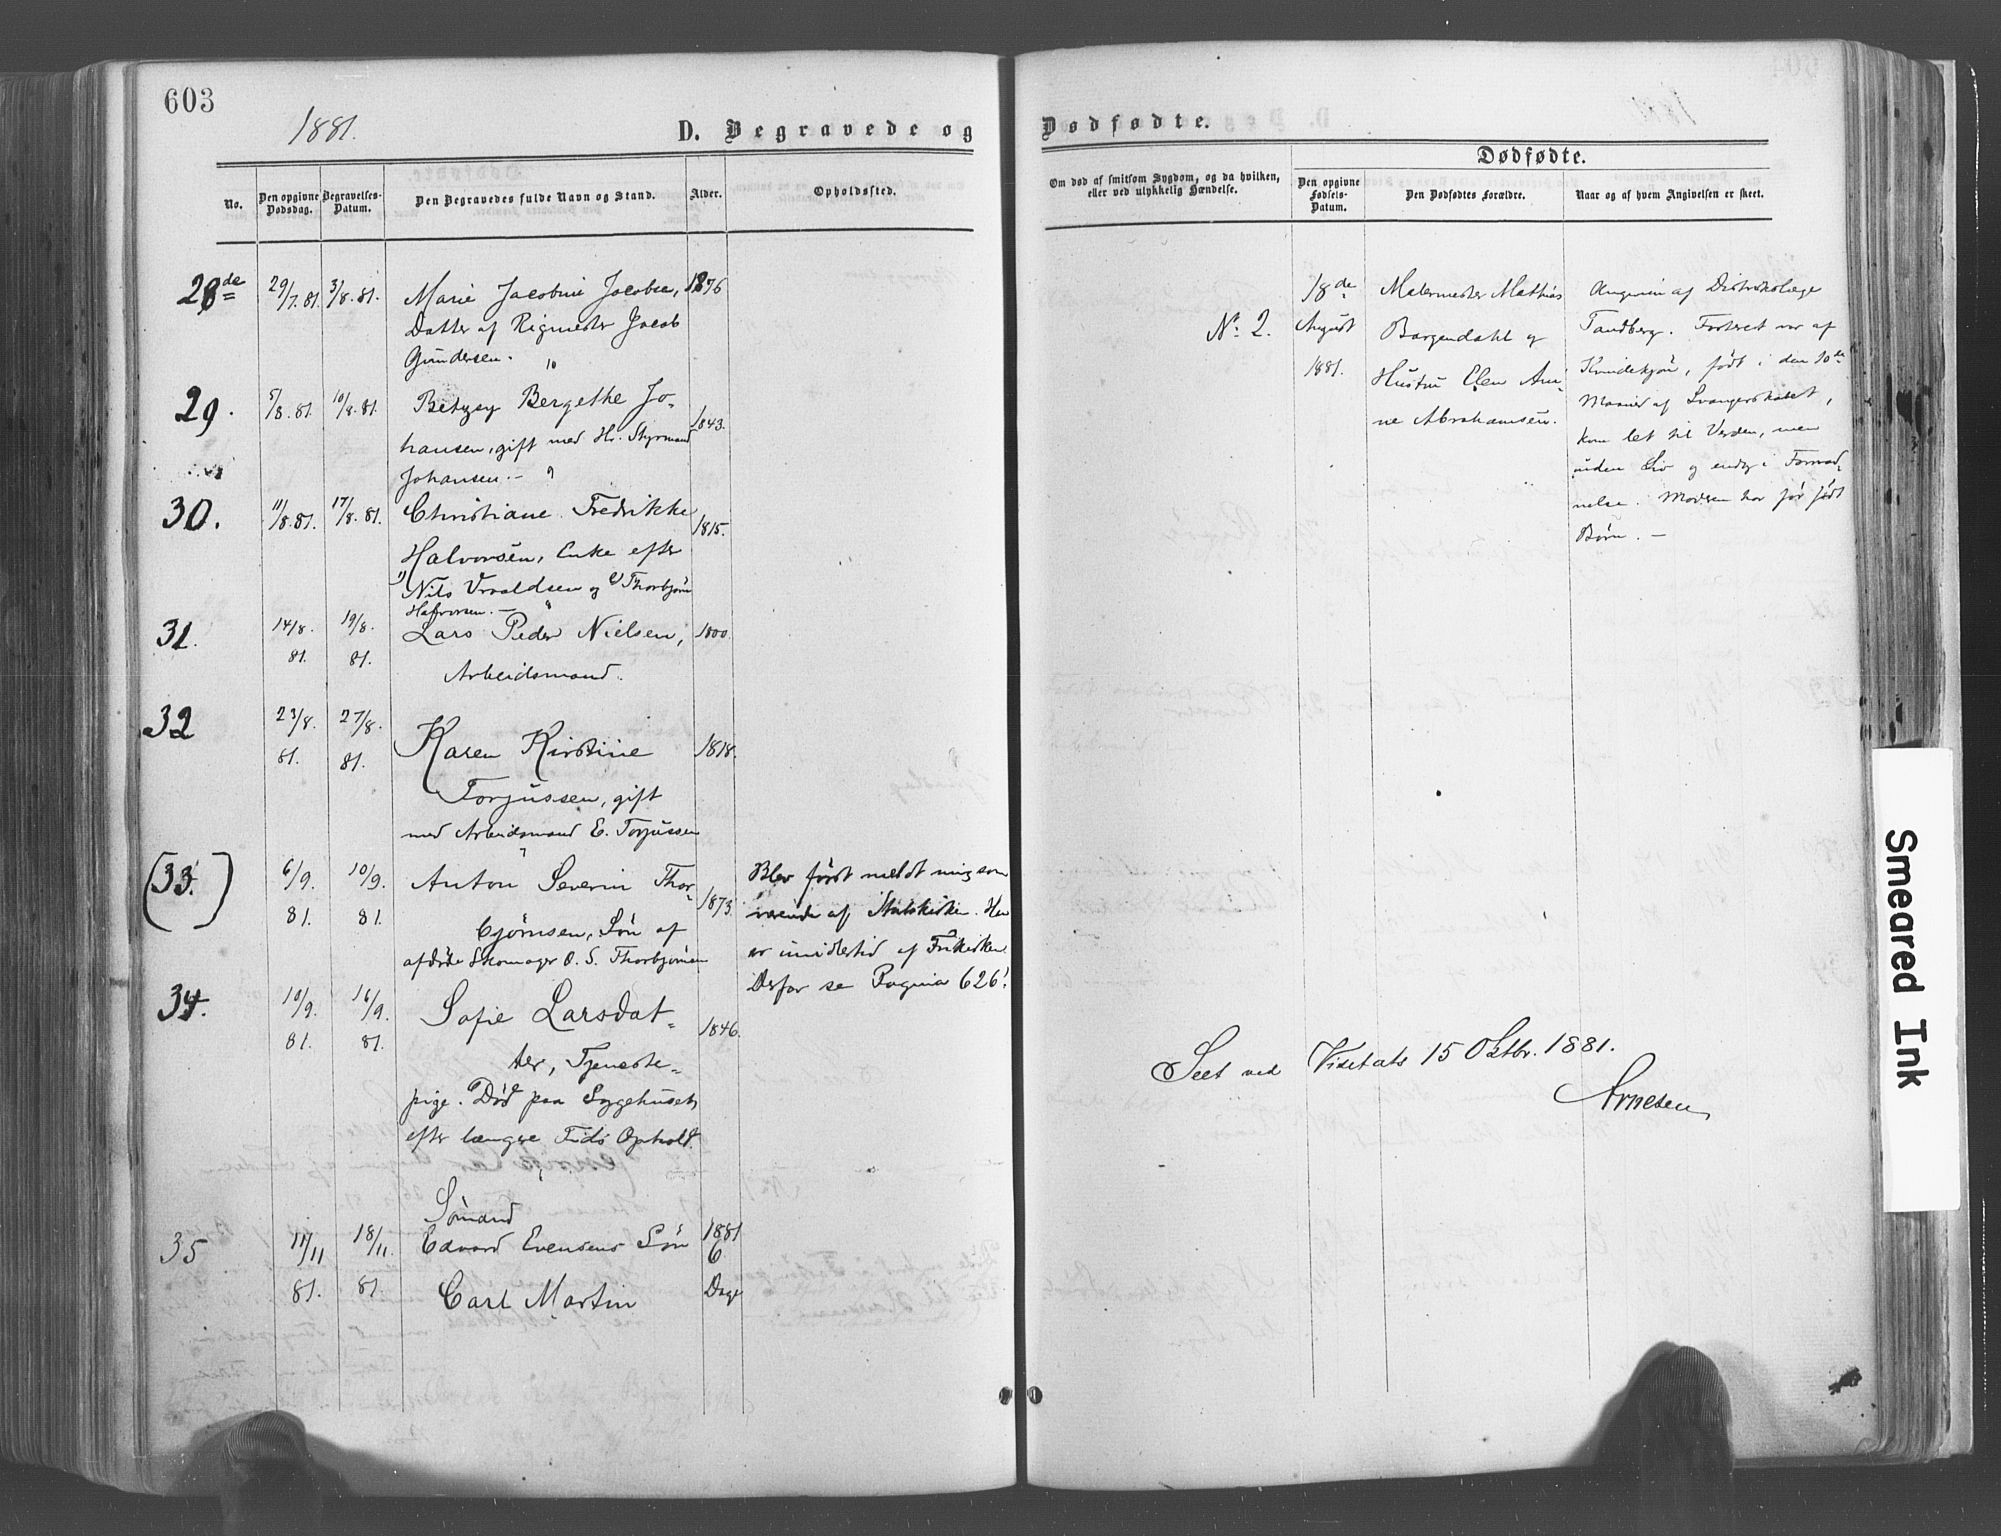 603
1881.
D. Begravede og
Dødfødte.
No.
Den opgivne Dødsdag.
Begravelses-Datum.
Den Begravedes fulde Navn og Stand.
Alder.
Opholdssted.
Om død af smitsom Sygdom, og da hvilken,
eller ved ulykkelig Hændelse.
Dødfødte.
Den opgivne Fødsels-Datum.
Den Dødfødtes Forældre.
Naar og af hvem Angivelsen er skeet.
28de 29/7.81. 3/8.81. Marie Jacobine Jacobsen, 1876
Datter af Rigmester Jacob
Gundersen.
29. 5/8.81. 10/8.81. Betzey Bergethe Jo-
hansen, gift med Hr. Styrmand 1843.
Johansen.
30. 11/8.81. 17/8.81. Christiane Fredrikke 1815.
Halvorsen, Enke efter
1) Nils Vraaldsen og 2) Thorbjørn
Halvorsen.
31. 14/8. 81. 19/8. 81. Lars Peder Nielsen, 1800.
Arbeidsmand.
32 23/8. 81. 27/8. 81. Karen Kirstine 1818.
Torjussen, gift
med Arbeidsmand E. Torjussen
(33.) 6/9. 81. 10/9. 81. Anton Severin Thor- 1873.
bjørnsen, Søn af
afdøde Skomager O. S. Thorbjørnsen
Blev først meldt mig som
værende af Statskirken. Han
er imidlertid af Frikirken.
Derfor se Pagina 626!
34. 10/9. 81. 16/9. 81. Sofie Larsdat- 1846.
ter, Tjeneste-
pige. Død paa Sygehuset
efter længere Tids Ophold.
Sømand
35 11/11 81. 18/11. 81. Edvard Evensens Søn 1881
Carl Martin 6 Dage
No. 2. 18de August 1881.
Malermester Mathias
Borgendahl og
Hustru Elen An-
ne Abrahamsen.
Angiven af Distriktslæge
Tandberg. Fosteret var af
Kvindekjøn, født i den 10de
Maaned af Svangerskabet,
kom let til Verden, men
uden Liv og endog i Forraad-
nelse. Moderen har før født
Børn. —
Seet ved Visitats 15 Oktbr. 1881.
Arnesen
Smeared Ink